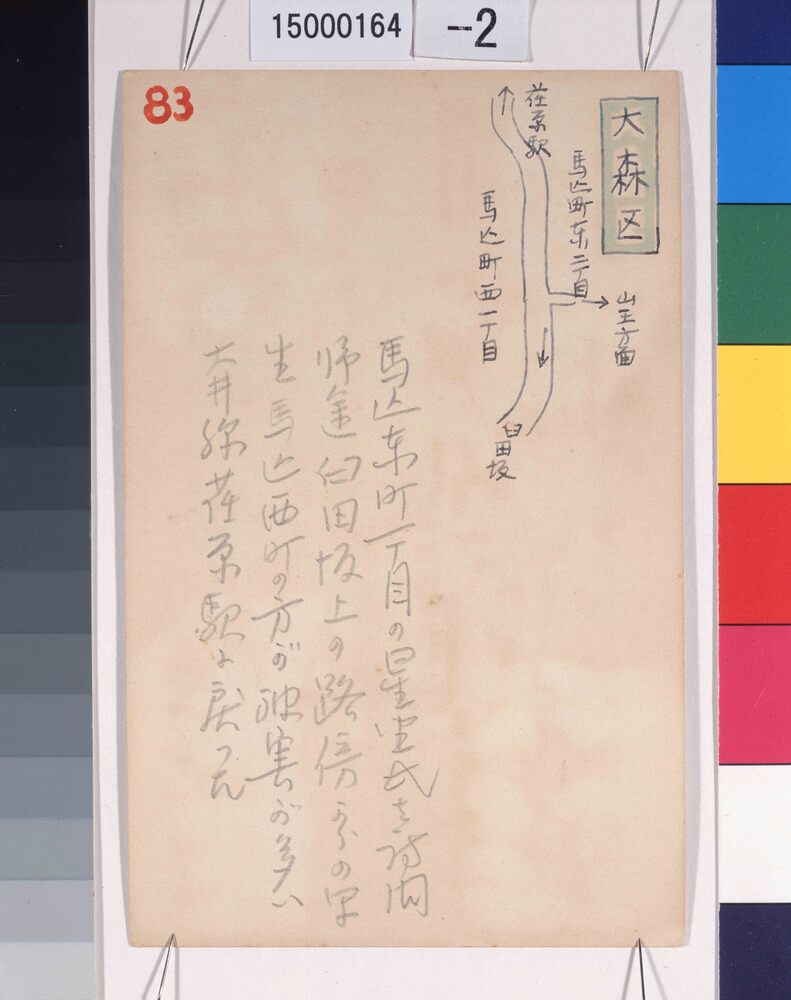 15000164 -2
83
大森区
荏原駅
馬込町東二丁目
山王方面
馬込町西一丁目
臼田坂
馬込東町一丁目の星 氏を訪問
帰途臼田坂上の路傍からの写
生馬込西町の方が被害が多い
大井 荏原駅に戻つた